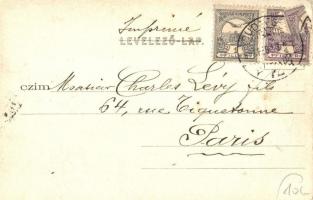 Imprimé
LEVELEZŐ-LAP.
czim: Monsieur Charles Lévy fils
64, rue Tiquetonne
Paris